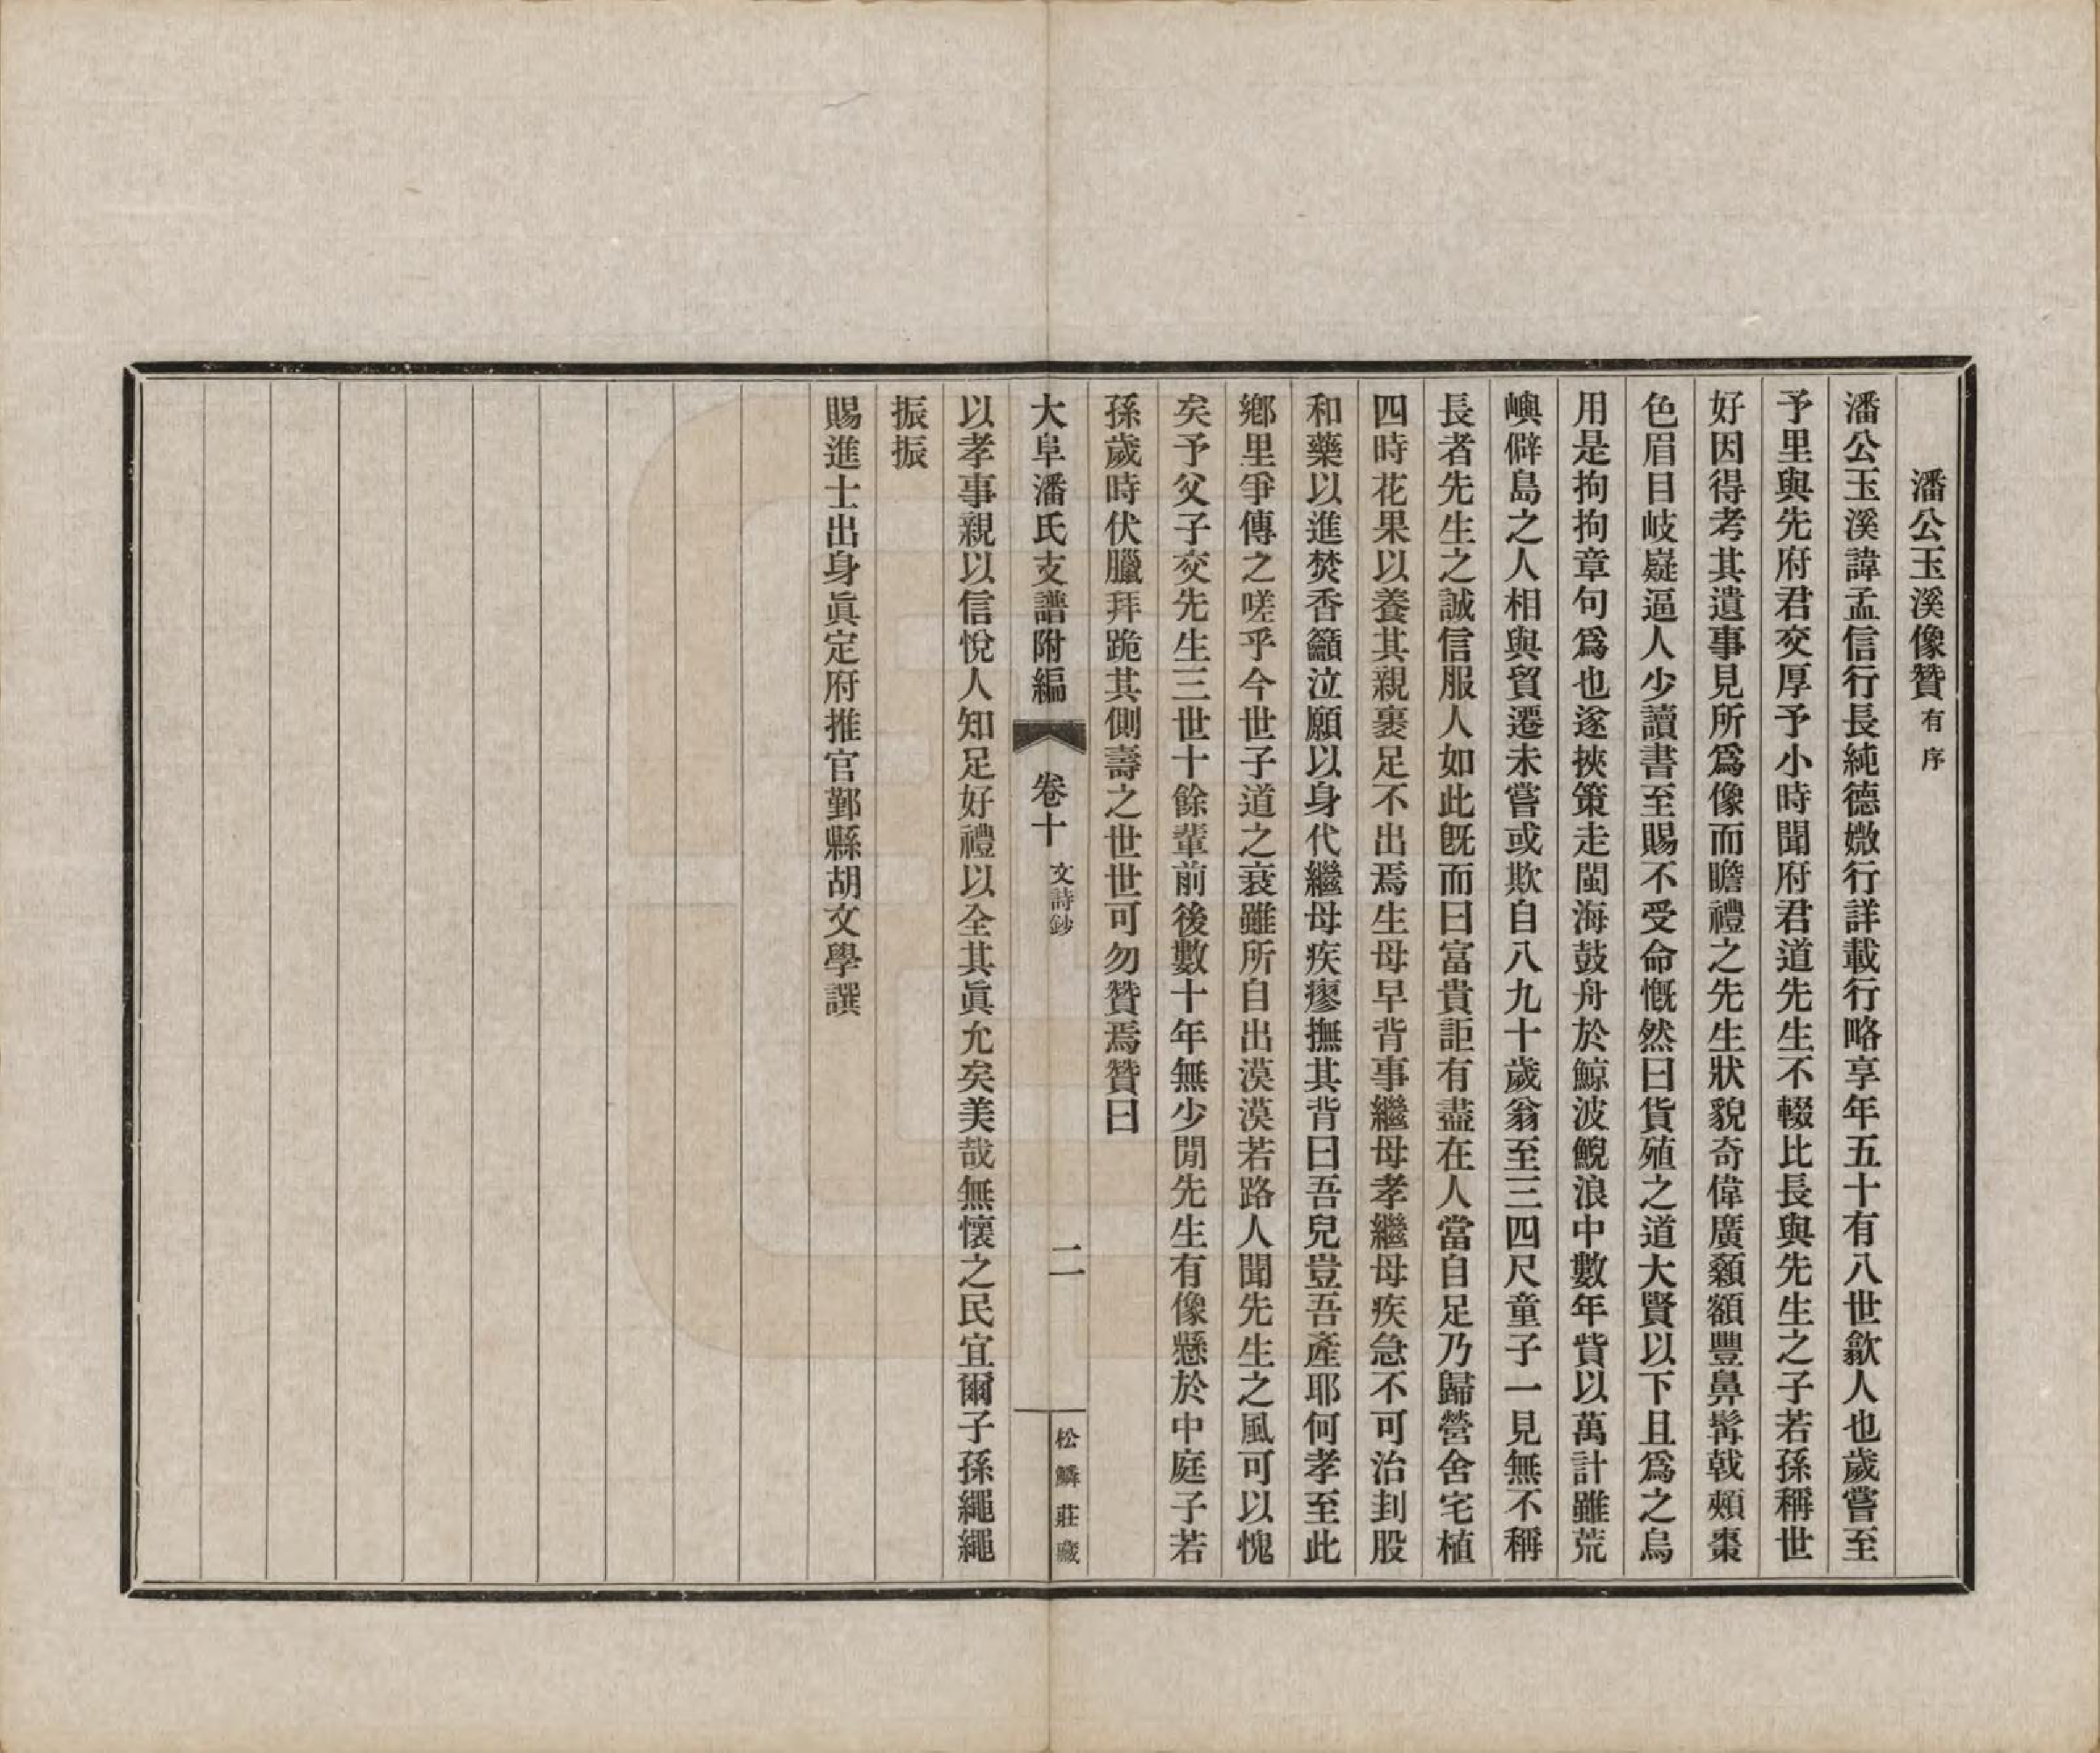 潘公玉溪像贊有序
潘公玉溪諱孟信行長純德媺行詳載行略享年五十有八世歙人也歲嘗至
予里與先府君交厚予小時聞府君道先生不輟比長與先生之子若孫稱世
好因得考其遺事見所爲像而瞻禮之先生狀貌奇偉廣顙額豐鼻髯戟頰棗
色眉目岐嶷逼人少讀書至賜不受命慨然曰貨殖之道大賢以下且爲之烏
用是拘拘章句爲也遂挾策走閩海鼓舟於鯨波鯢浪中數年貲以萬計雖荒
嶼僻島之人相與貿遷未嘗或欺自八九十歲翁至三四尺童子一見無不稱
長者先生之誠信服人如此旣而曰富貴詎有盡在人當自足乃歸營舍宅植
四時花果以養其親裹足不出焉生母早背事繼母孝繼母疾急不可治刲股
和藥以進焚香籲泣願以身代繼母疾瘳撫其背曰吾兒豈吾產耶何孝至此
鄕里爭傳之嗟乎今世子道之衰雖所自出漠漠若路人聞先生之風可以愧
矣予父子交先生三世十餘輩前後數十年無少閒先生有像懸於中庭子若
孫歲時伏臘拜跪其側壽之世世可勿贊焉贊曰
大阜潘氏支譜附編 卷十 文詩鈔 二 松鱗莊藏
以孝事親以信悅人知足好禮以全其眞允矣美哉無懷之民宜爾子孫繩繩
振振
賜進士出身眞定府推官鄞縣胡文學譔